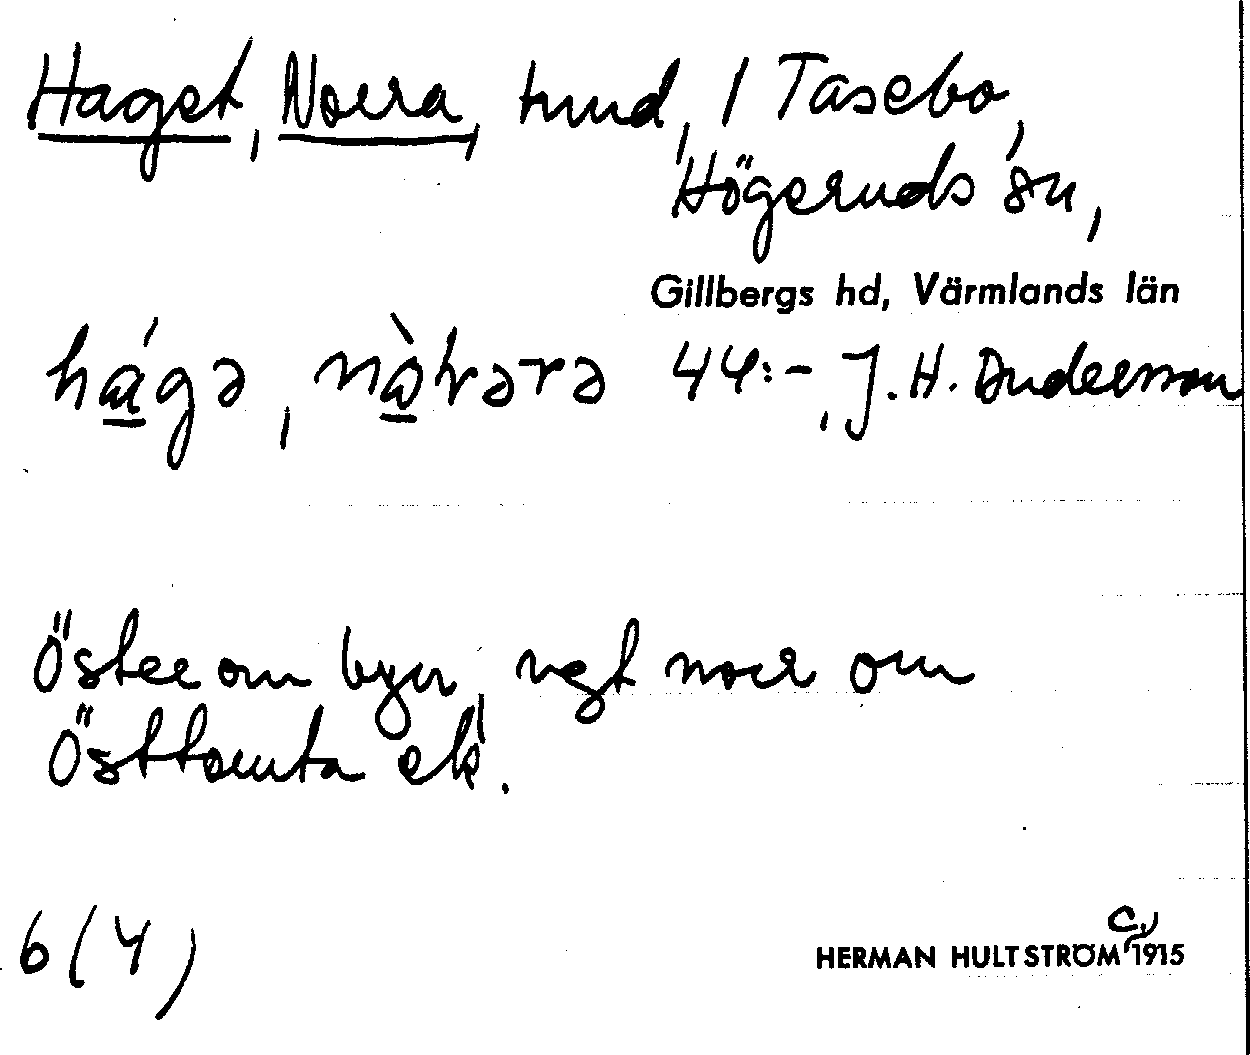 Haget, Norra, hmd, 1 Tasebo,
Högeruds sn,
Gillbergs hd, Värmlands län
há̱gə, nò̱rərə 44:-, J. H. Andersson
Öster om byn, vgt norr om
Östtomta ek.
6 (4)
HERMAN HULTSTRÖM C. 1915